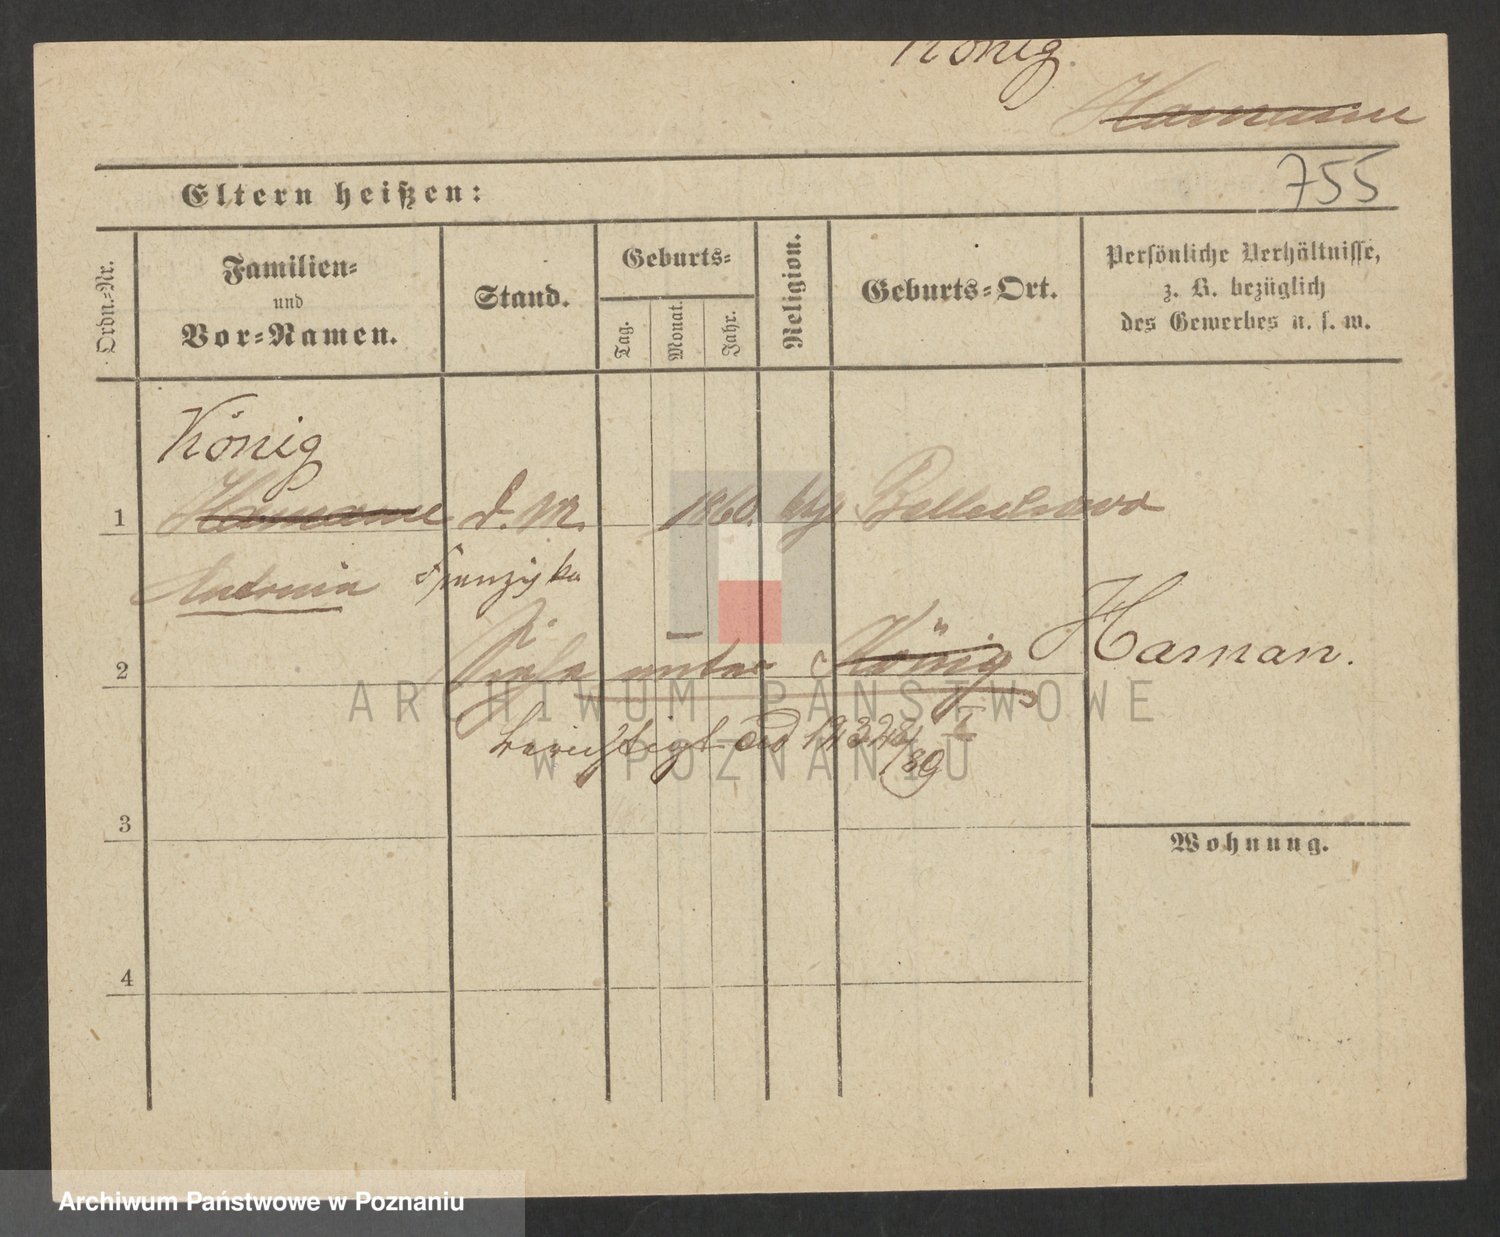 König.
Hamann
755
Eltern heißen:
Ordn.-Nr.
Familien-
und
Vor-Namen.
Stand.
Geburts-
Tag.
Monat.
Jahr.
Religion.
Geburts-Ort.
Persönliche Verhältnisse,
z. B. bezüglich
des Gewerbes u. s. w.
König
1 Hamann d. M. 1860.
Antonia Franziska
2 Siehe unter König Haman.
berichtigt
3
Wohnung.
4
ARCHIWUM PAŃSTWOWE
W POZNANIU
Archiwum Państwowe w Poznaniu